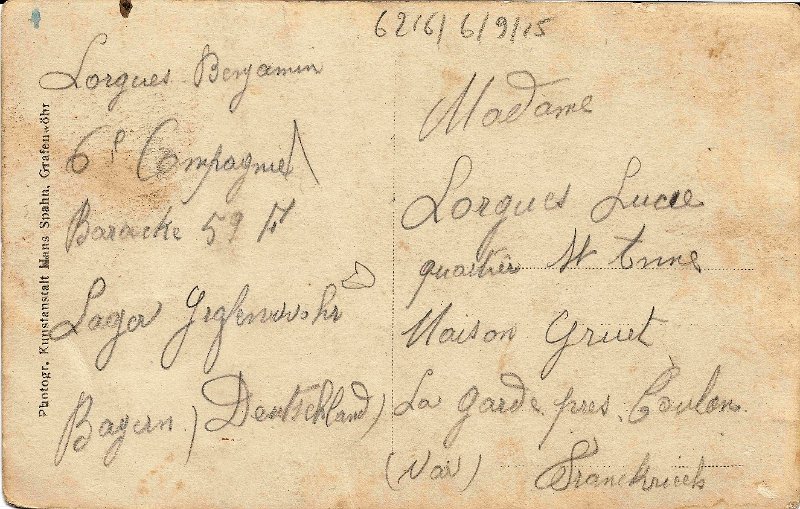 6216/ 6/9/15
Lorgues Benjamin
6e Compagnie
Baracke 59 A
Lager Grafenwöhr
Bayern (Deutschland)
Madame
Lorgues Lucie
quartier St Anne
Maison Gruet
La Garde pres Toulon
(Var) Franckriech
Photogr. Kunstanstalt Hans Spahn, Grafenwöhr